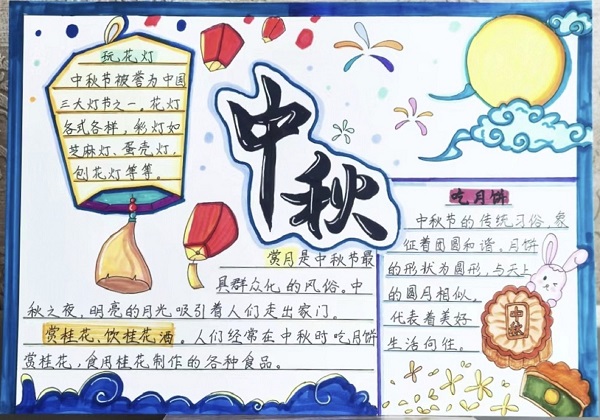 玩花灯
中秋节被誉为中国
三大灯节之一，花灯
各式各样，彩灯如
芝麻灯、蛋壳灯，
刨花灯等等。
中秋
赏月是中秋节最
具群众化的风俗。中
秋之夜，明亮的月光吸引着人们走出家门。
赏桂花、饮桂花酒。人们经常在中秋时吃月饼
赏桂花，食用桂花制作的各种食品。
吃月饼
中秋节的传统习俗，象
征着团圆和谐。月饼
的形状为圆形，与天上
的圆月相似。
代表着美好
生活向往。
中秋